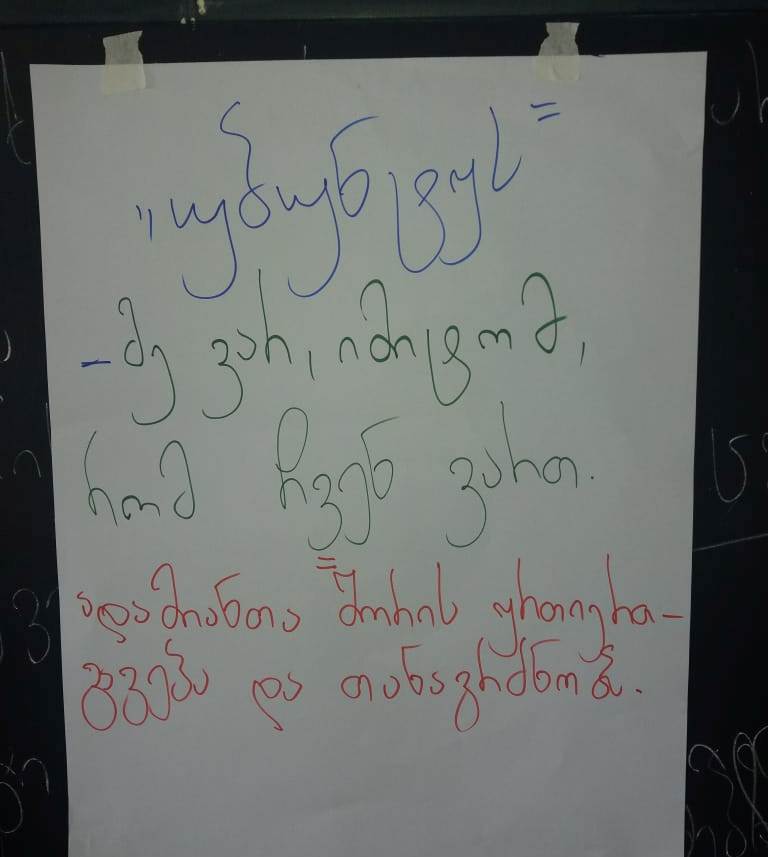 „უბუნტუს"
- მე ვარ, იმიტომ,
რომ ჩვენ ვართ.
ადამიანთა შორის ურთიერთ-
გაგება და თანაგრძნობა.